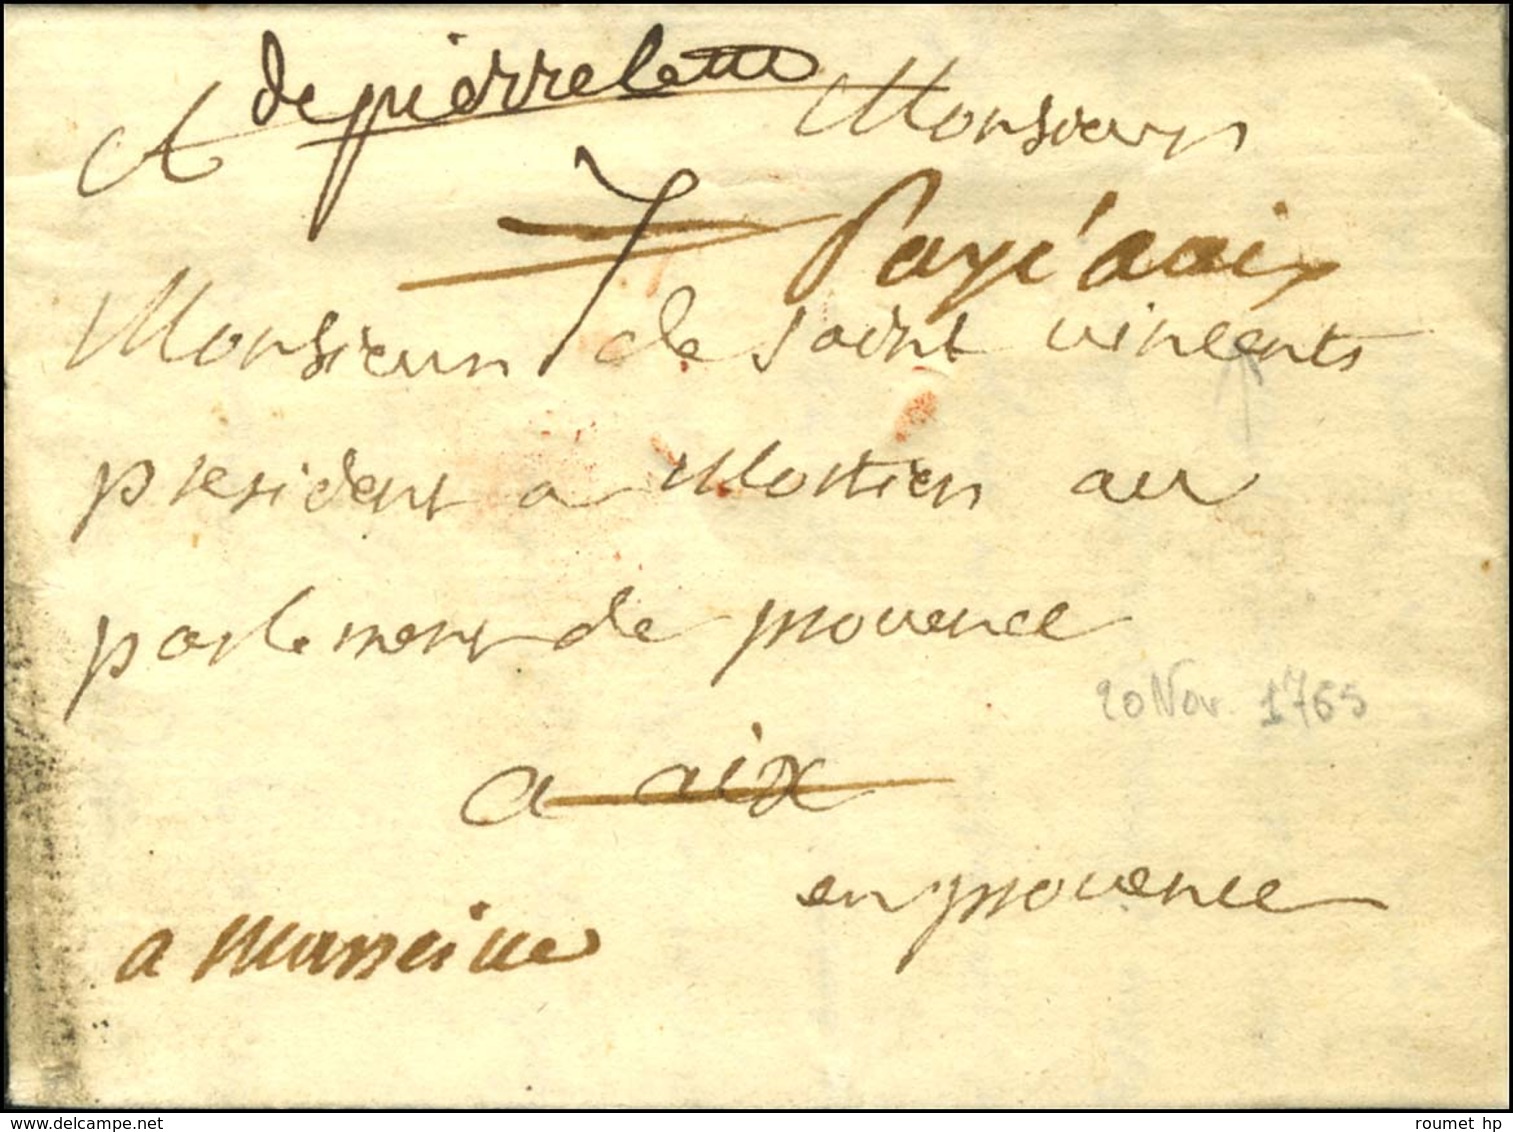 de pierrelatte
A Monsieur
7 Payé a aix
Monsieur de saint vincents
president a Mortier au
parlement de provence
20 Nov. 1765
a aix
en provence
a Marseille
delcampe.net
roumet hp